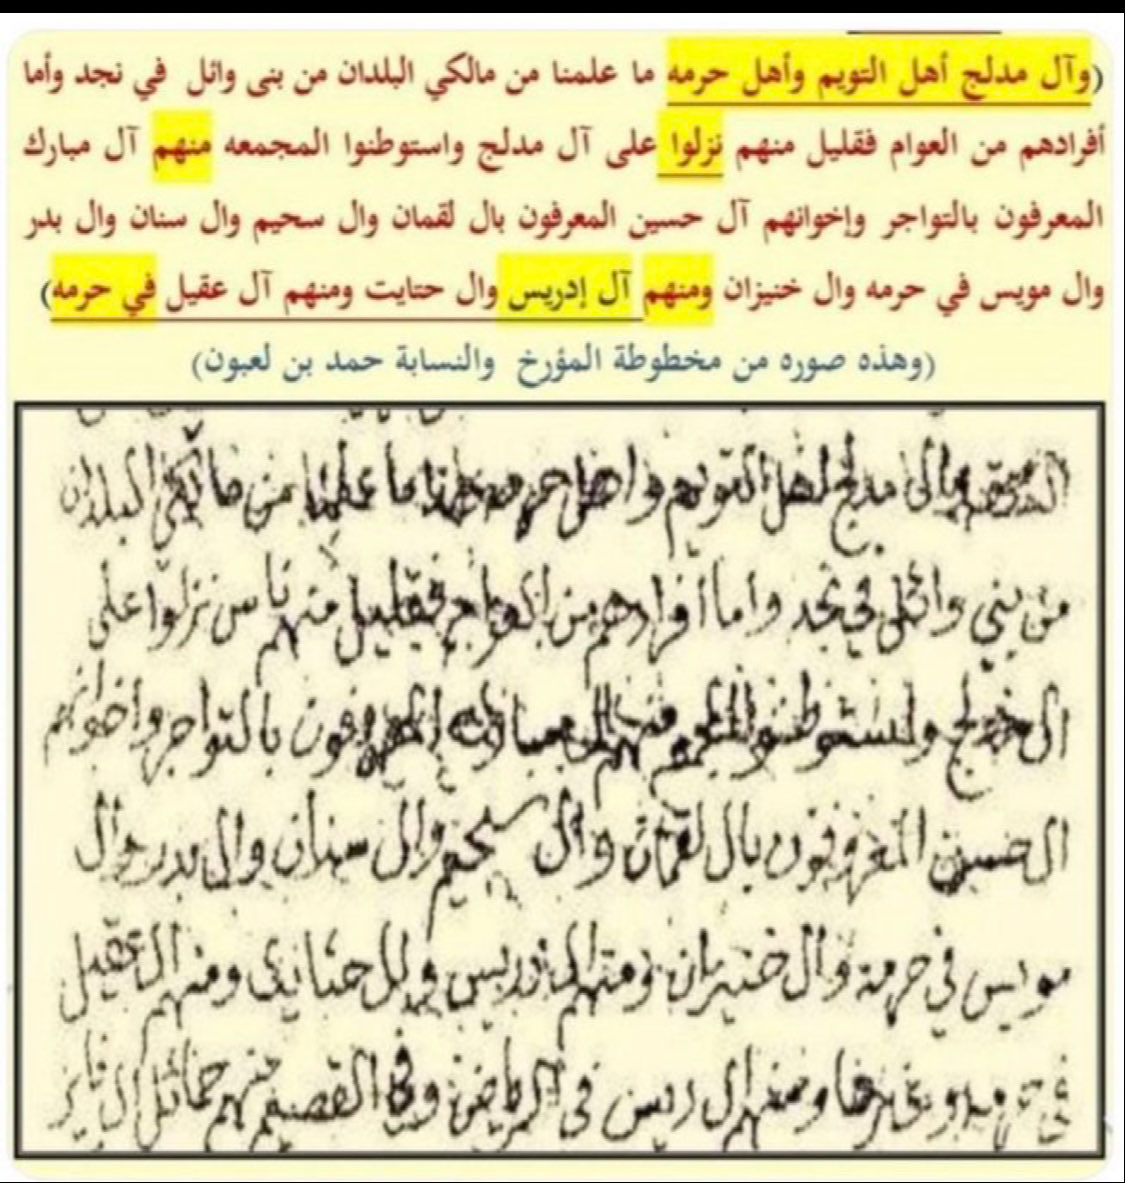 (وآل مدلج أهل التويم وأهل حرمه ما علمنا من مالكي البلدان من بنى وائل في نجد وأما
أفرادهم من العوام فقليل منهم نزلوا على آل مدلج واستوطنوا المجمعه منهم آل مبارك
المعرفون بالتواجر وإخوانهم آل حسين المعرفون بال لقمان وال سحيم وال سنان وال بدر
وال مويس في حرمه وال خنيزان ومنهم آل إدريس وال حتايت ومنهم آل عقيل في حرمه)
(وهذه صوره من مخطوطة المؤرخ والنسابة حمد بن لعبون)
وال مدلج اهل التويم واهل حرمه ما علمنا من مالكي البلدان
من بني وائل في نجد واما أفرادهم من العوام فقليل منهم ناس نزلوا على
ال مدلج واستوطنوا منهم المعروفون بالتواجر واخوانهم
ال حسين المعروفون بال لقمان وال سحيم وال سنان وال بدر وال
مويس في حرمة وال خنيزان ومنهم وال حتايت ومنهم ال عقيل
في وغيرها ومنهم ال ريس في الرياض وفي القصيم منهم حمائل ال